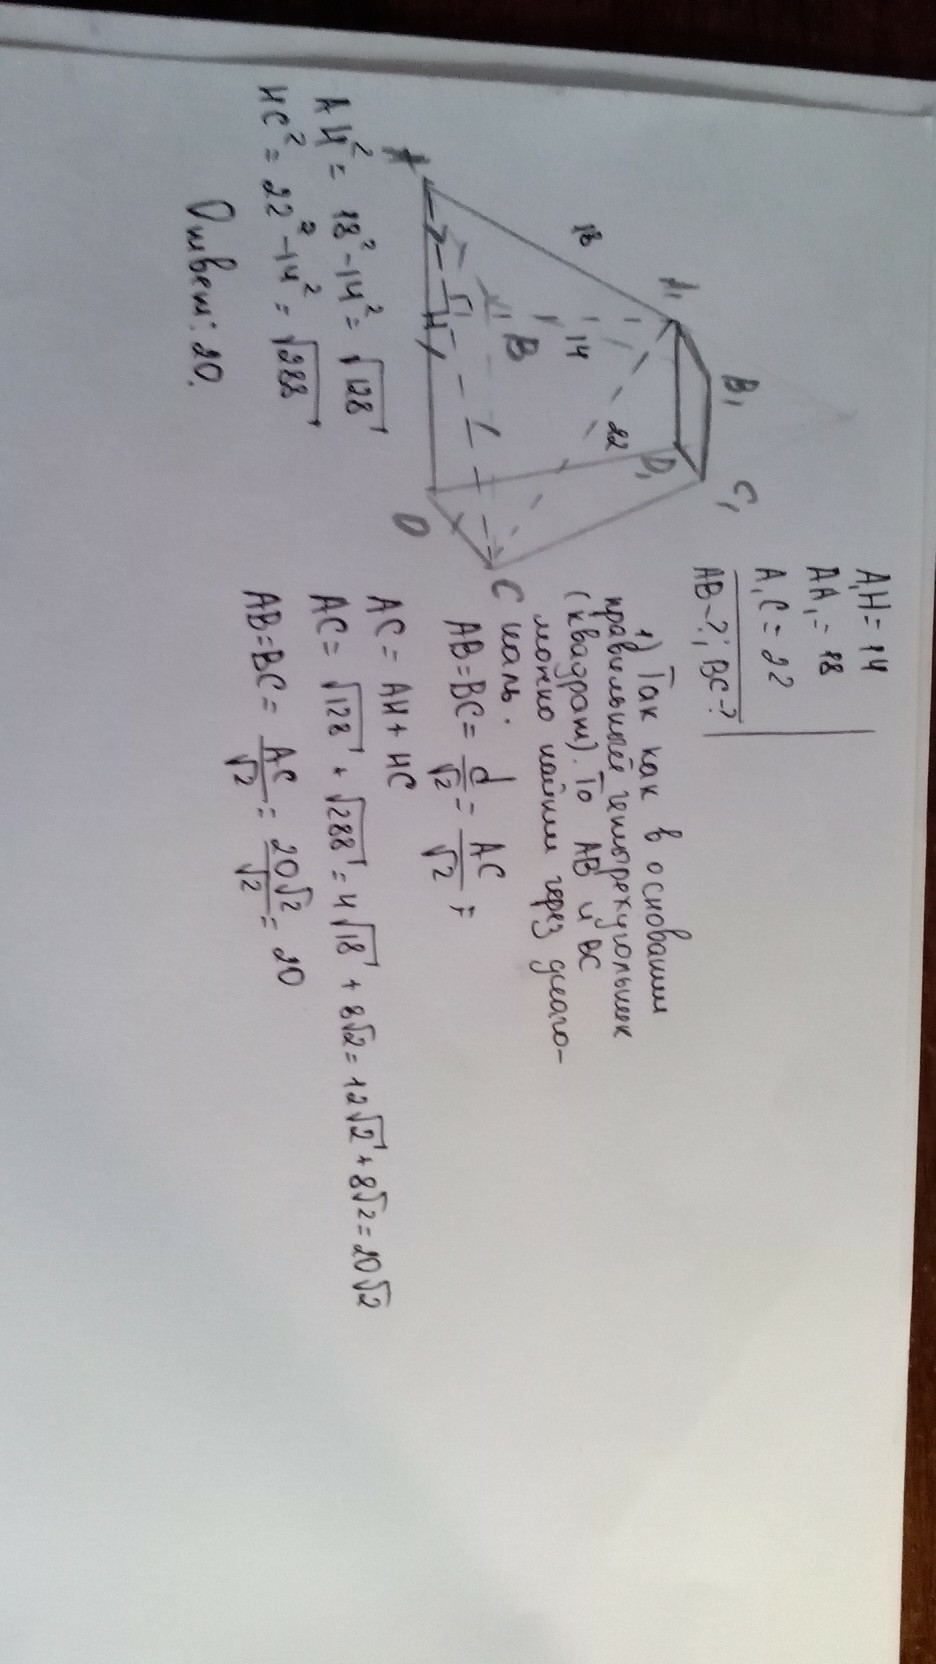 A₁H = 14
AA₁ = 18
A₁C = 22
AB-?; BC-?
A₁
B₁
C₁
D₁
18
14
22
A
B
H
D
C
1) Так как в основании
правильный четырехугольник
(квадрат). То AB и BC
можно найти через диаго-
наль.
AB = BC = d/√2 = AC/√2 =
AC = AH + HC
AC = √128 + √288 = 4√18 + 8√2 = 12√2 + 8√2 = 20√2
AB = BC = AC/√2 = 20√2/√2 = 20
AH² = 18² - 14² = √128
HC² = 22² - 14² = √288
Ответ: 20.